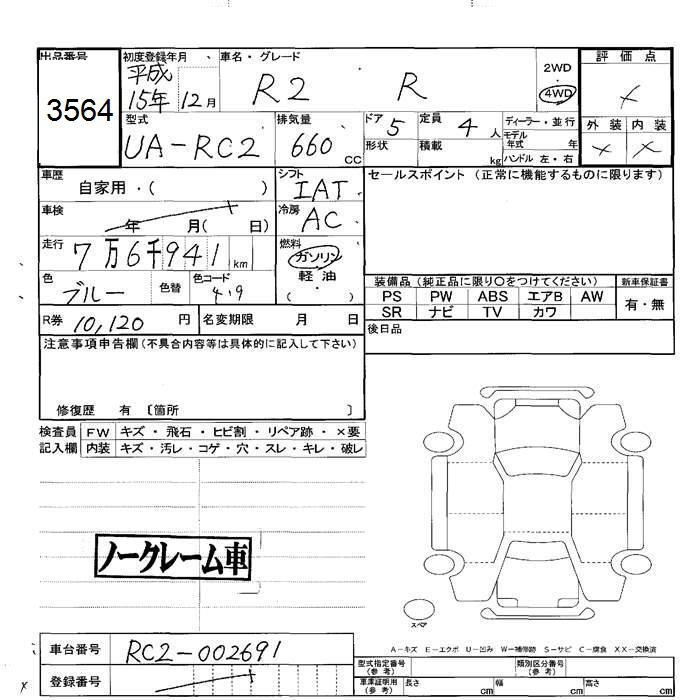 出品番号 初度登録年月 車名・グレード 評価点
3564 平成15年12月 R2 R 2WD 4WD ×
型式 排気量 ドア 定員 ディーラー・並行 外装 内装
UA-RC2 660cc 5 4人 モデル年式 年 × ×
形状 積載 kg ハンドル 左・右
車歴 シフト セールスポイント (正常に機能するものに限ります)
自家用・( ) IAT
車検 年 月( 日) 冷房 AC
走行 7万6千941km 燃料 ガソリン
軽・油
( ・ )
色 ブルー 色替 色コード 4.9
装備品 (純正品に限り○をつけてください) 新車保証書
PS PW ABS エアB AW 有・無
SR ナビ TV カワ
R券 10,120円 名変期限 月 日
後日品
注意事項申告欄 (不具合内容等は具体的に記入して下さい)
修復歴 有 〔箇所 〕
検査員 FW キズ・飛石・ヒビ割・リペア跡・×要
記入欄 内装 キズ・汚レ・コゲ・穴・スレ・キレ・破レ
ノークレーム車
スペア
A-キズ E-エクボ U-凹み W-補修跡 S-サビ C-腐食 XX-交換済
車台番号 RC2-002691
登録番号
型式指定番号(参考) 類別区分番号(参考)
車庫証明用(参考) 長さ cm 幅 cm 高さ cm